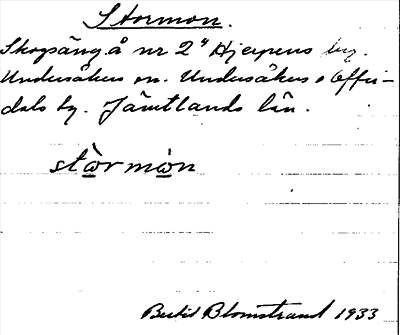 Stormon.
Skogsäng å nr 2⁴ Hjerpens by.
Undersåkers sn. Undersåkers o Offer-
dals tg. Jämtlands län.
stòrmòn
Bertil Blomstrand 1933